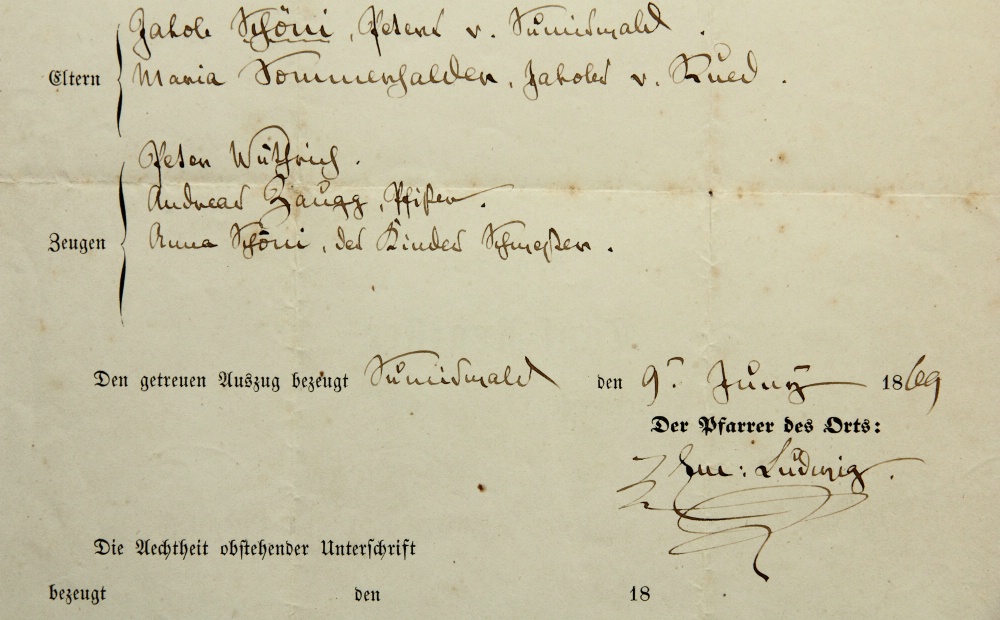 Jakob Schöni, Peters v. Sumiswald.
Eltern
Maria Sommerhalder, Jakobs v. Rued.
Peter Wüthrich.
Andreas Zaugg, Pfister.
Zeugen
Anna Schöni, des Kindes Schwester.
Den getreuen Auszug bezeugt Sumiswald den 9. Juny 1869
Der Pfarrer des Orts:
Em: Ludwig.
Die Aechtheit obstehender Unterschrift
bezeugt den 18